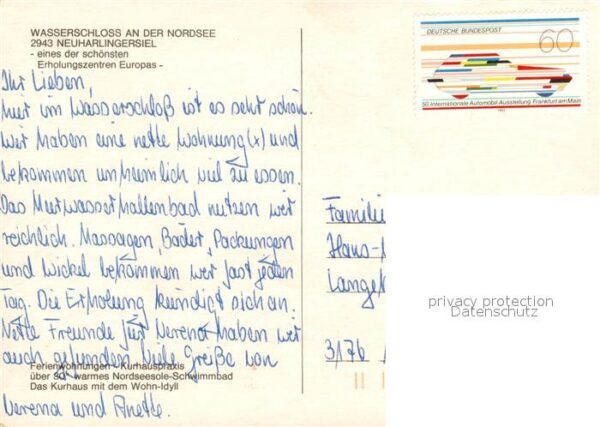 WASSERSCHLOSS AN DER NORDSEE
2943 NEUHARLINGERSIEL
- eines der schönsten
Erholungszentren Europas -
Ihr Lieben,
hier im Wasserschloß ist es sehr schön.
Wir haben eine nette Wohnung (x) und
bekommen unheimlich viel zu essen.
Das Meerwasserhallenbad nutzen wir
reichlich. Massagen, Bäder, Packungen
und Wickel bekommen wir fast jeden
Tag. Die Erholung kündigt sich an.
Nette Freunde für Verena haben wir
auch gefunden. Viele Grüße von
Ferienwohnungen - Kurhauspraxis
über 30° warmes Nordseesole-Schwimmbad
Das Kurhaus mit dem Wohn-Idyll
Verena und Anette.
DEUTSCHE BUNDESPOST
60
50. Internationale Automobil-Ausstellung Frankfurt am Main
1983
Familie
Hans-
Lange
3176
privacy protection
Datenschutz